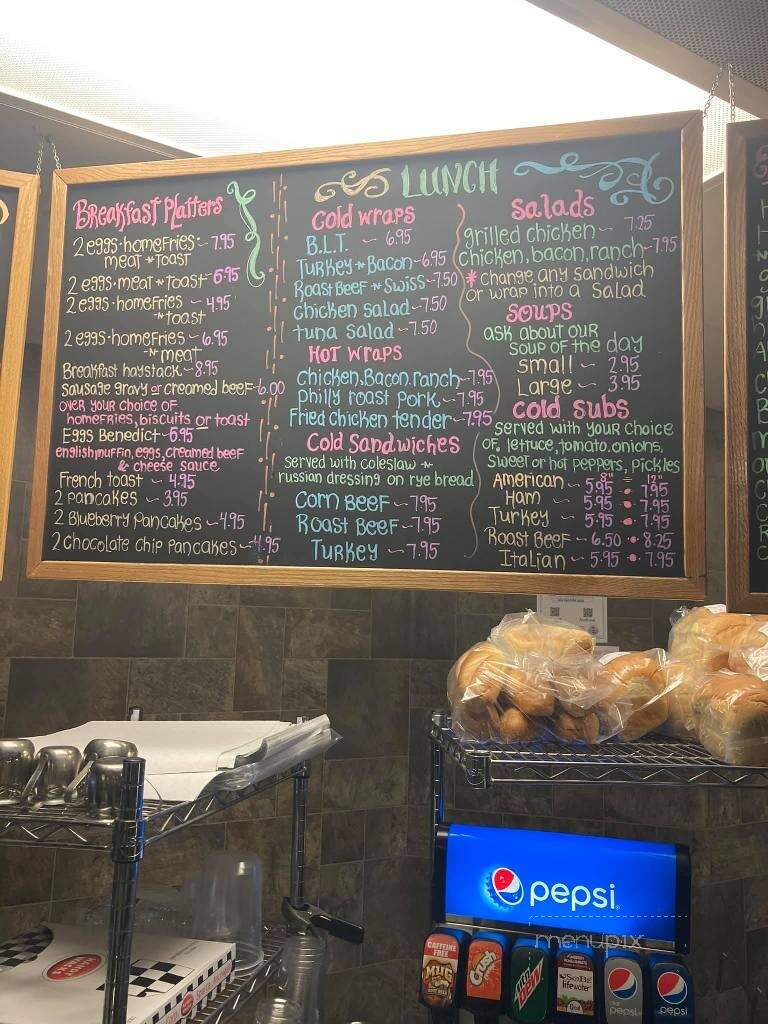 Breakfast Platters
2 eggs·homefries ~ 7.95
meat & toast
2 eggs·meat & toast 6.95
2 eggs·homefries ~ 4.95
& toast
2 eggs·homefries ~ 6.95
& meat
Breakfast haystack ~ 8.95
sausage gravy or creamed beef ~ 6.00
over your choice of
homefries, biscuits or toast
Eggs Benedict ~ 6.95
english muffin, eggs, creamed beef
& cheese sauce
French toast ~ 4.95
2 pancakes ~ 3.95
2 Blueberry pancakes ~ 4.95
2 chocolate chip pancakes ~ 4.95
LUNCH
Cold wraps
B.L.T. ~ 6.95
Turkey & Bacon ~ 6.95
Roast Beef & Swiss ~ 7.50
chicken salad ~ 7.50
tuna salad ~ 7.50
Hot wraps
chicken, Bacon, ranch ~ 7.95
philly roast pork ~ 7.95
Fried chicken tender ~ 7.95
Cold Sandwiches
served with coleslaw &
russian dressing on rye bread
Corn Beef ~ 7.95
Roast Beef ~ 7.95
Turkey ~ 7.95
Salads
grilled chicken ~ 7.25
chicken, bacon, ranch ~ 7.95
* change any sandwich
or wrap into a salad
Soups
ask about our
soup of the day
small ~ 2.95
Large ~ 3.95
Cold Subs
served with your choice
of lettuce, tomato, onions,
sweet or hot peppers, pickles
8" 12"
American ~ 5.95 • 7.95
Ham ~ 5.95 • 7.95
Turkey ~ 5.95 • 7.95
Roast Beef ~ 6.50 • 8.25
Italian ~ 5.95 • 7.95
pepsi
menupix
CAFFEINE FREE
MUG
Crush
mtn dew
SoBe
lifewater
diet pepsi
pepsi